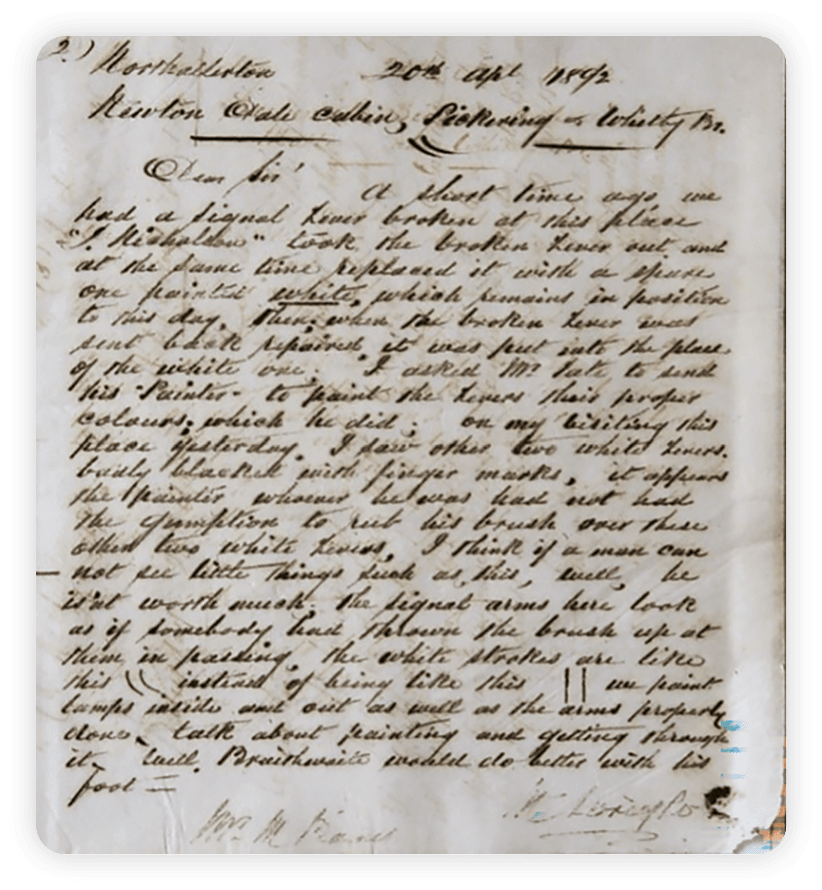 2.)
Northallerton 20th Apl 1892
Newton Dale Cabin, Pickering & Whitby Br.
Dear Sir'
A short time ago we
had a signal lever broken at this place
"J. Nicholson" took the broken lever out and
at the same time replaced it with a spare
one painted white, which remains in position
to this day, then, when the broken lever was
sent back repaired it was put into the place
of the white one. I asked Mr Tate to send
his Painter to paint the levers their proper
colours; which he did; on my visiting this
place yesterday, I saw other two white levers.
badly blacked with finger marks, it appears
the painter whoever he was had not had
the gumption to rub his brush over these
other two white levers, I think if a man can
not see little things such as this, well, he
is'nt worth much; the signal arms here look
as if somebody had thrown the brush up at
them in passing, the white strokes are like
this \\ instead of being like this || we paint
lamps inside and out as well as the arms properly
done, talk about painting and getting through
it. Will. Braithwaite would do better with his
foot =
Mr M